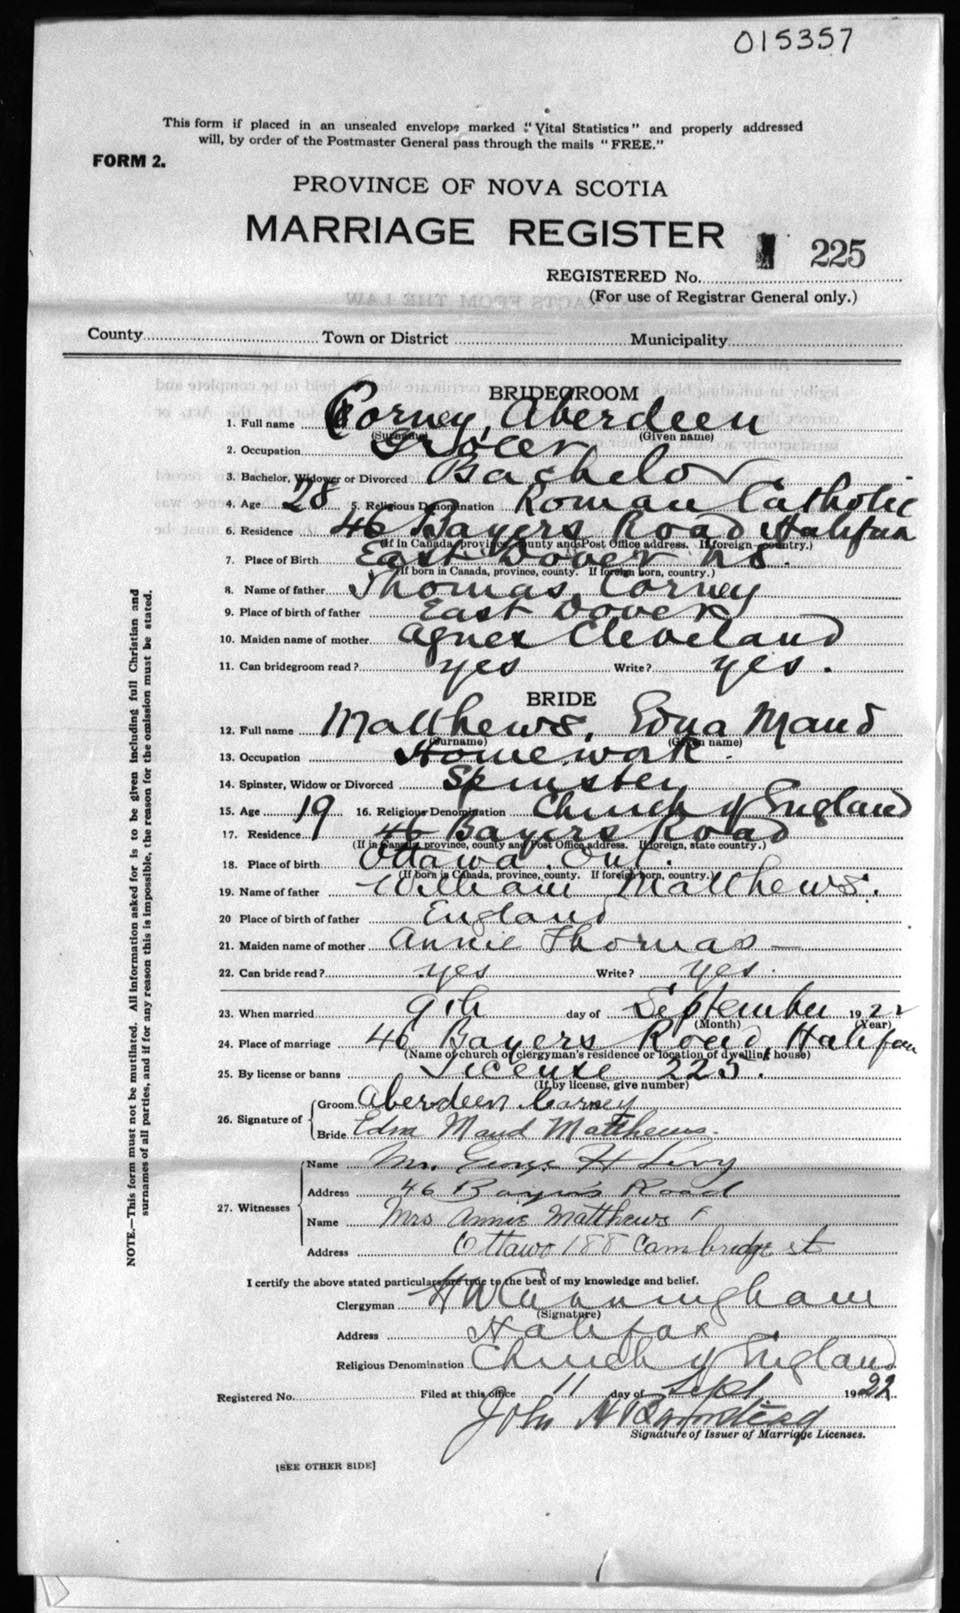 015357
This form if placed in an unsealed envelope marked "Vital Statistics" and properly addressed
will, by order of the Postmaster General pass through the mails "FREE."
FORM 2.
PROVINCE OF NOVA SCOTIA
MARRIAGE REGISTER
225
REGISTERED No.
(For use of Registrar General only.)
County Town or District Municipality
BRIDEGROOM
1. Full name Corney, Aberdeen
(Surname) (Given name)
2. Occupation Grocer
3. Bachelor, Widower or Divorced Bachelor
4. Age 28 5. Religious Denomination Roman Catholic
6. Residence 46 Bayers Road Halifax
(If in Canada, province, county and Post Office address. If foreign country.)
7. Place of Birth East Dover N.S.
(If born in Canada, province, county. If foreign born, country.)
8. Name of father Thomas Corney
9. Place of birth of father East Dover
10. Maiden name of mother Agnes Cleveland
11. Can bridegroom read? yes Write? yes.
BRIDE
12. Full name Matthews, Edna Maud
(Surname) (Given name)
13. Occupation Home work.
14. Spinster, Widow or Divorced Spinster
15. Age 19 16. Religious Denomination Church of England
17. Residence 46 Bayers Road
(If in Canada, province, county and Post Office address. If foreign, state country.)
18. Place of birth Ottawa. Ont.
(If born in Canada, province, county. If foreign born, country.)
19. Name of father William Matthews.
20 Place of birth of father England
21. Maiden name of mother Annie Thomas
22. Can bride read? yes Write? yes.
23. When married 9th day of September 1922
(Month) (Year)
24. Place of marriage 46 Bayers Road, Halifax
(Name of church or clergyman's residence or location of dwelling house)
25. By license or banns License 225.
(If by license, give number)
26. Signature of Groom Aberdeen Corney
Bride Edna Maud Matthews.
27. Witnesses
Name Mr. George H Levy
Address 46 Bayers Road
Name Mrs Annie Matthews
Address Ottawa 188 Cambridge st
I certify the above stated particulars are true to the best of my knowledge and belief.
Clergyman H W Cunningham
(Signature)
Address Halifax
Religious Denomination Church of England
Registered No. Filed at this office 11 day of Sept 1922
John H
Signature of Issuer of Marriage Licenses.
[SEE OTHER SIDE]
NOTE.—This form must not be mutilated. All information asked for is to be given including full Christian and
surnames of all parties, and if for any reason this is impossible, the reason for the omission must be stated.